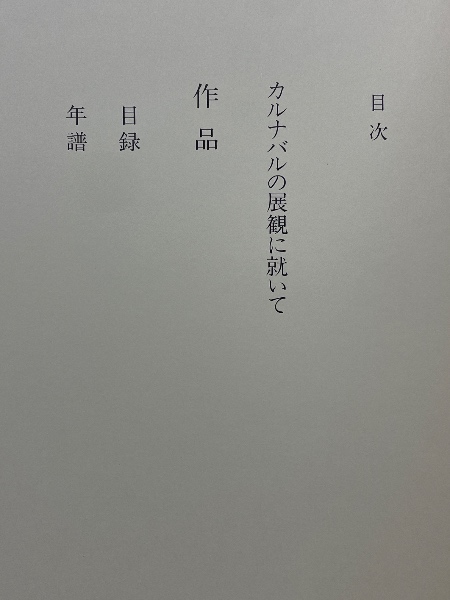 目次
カルナバルの展観に就いて
作品
目録
年譜